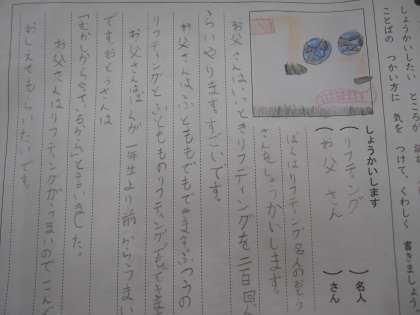 しょうかいした
ことばの つかい方に 気を つけて、くわしく 書きましょう
しょうかいします
（リフティング）名人
（お父さん）さん
ぼくはリフティング名人のおとう
さんをしょうかいします。
お父さんは、いっときリフティングを二百回
らいやります。すごいです。
お父さんは、ふとももでもできます。ふつうの
リフティングとふともものリフティングもできま
お父さんは、ぼくが一年生より前からうまい
です。おとうさんは
「むかしからやっているから」と言いました。
お父さんはリフティングがうまいのでこんど
おしえてもらいたいです。